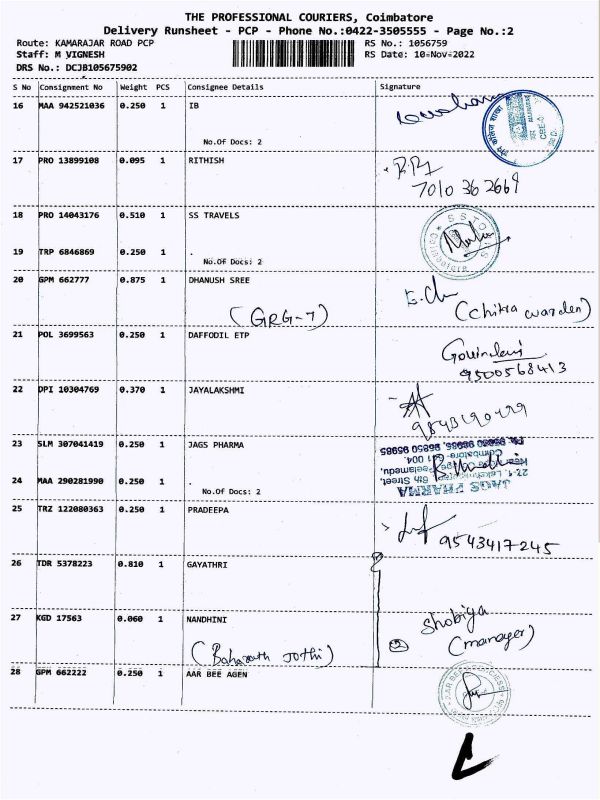 THE PROFESSIONAL COURIERS, Coimbatore
Delivery Runsheet - PCP - Phone No.:0422-3505555 - Page No.:2
Route: KAMARAJAR ROAD PCP RS No.: 1056759
Staff: M VIGNESH RS Date: 10-Nov-2022
DRS No.: DCJB105675902
S No Consignment No Weight PCS Consignee Details Signature
16 MAA 942521036 0.250 1 IB
No.Of Docs: 2
17 PRO 13899108 0.095 1 RITHISH
7010 36 2669
18 PRO 14043176 0.510 1 SS TRAVELS
19 TRP 6846869 0.250 1 .
No.Of Docs: 2
20 GPM 662777 0.875 1 DHANUSH SREE
(GRG-7) (Chitra warden)
21 POL 3699563 0.250 1 DAFFODIL ETP
9500568413
22 DPI 10304769 0.370 1 JAYALAKSHMI
23 SLM 307041419 0.250 1 JAGS PHARMA
24 MAA 290281990 0.250 1 .
No.Of Docs: 2
JAGS PHARMA
25 TRZ 122080363 0.250 1 PRADEEPA
9543417245
26 TDR 5378223 0.810 1 GAYATHRI
27 KGD 17563 0.060 1 NANDHINI
Shobiya
(manager)
28 GPM 662222 0.250 1 AAR BEE AGEN